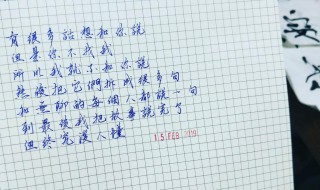 有很多話想和你說
但是你不找我
所以我就不和你說
然後把它們拆成很多句
和無聊的每個人都說一句
到最後我把故事說完了
但終究沒人懂